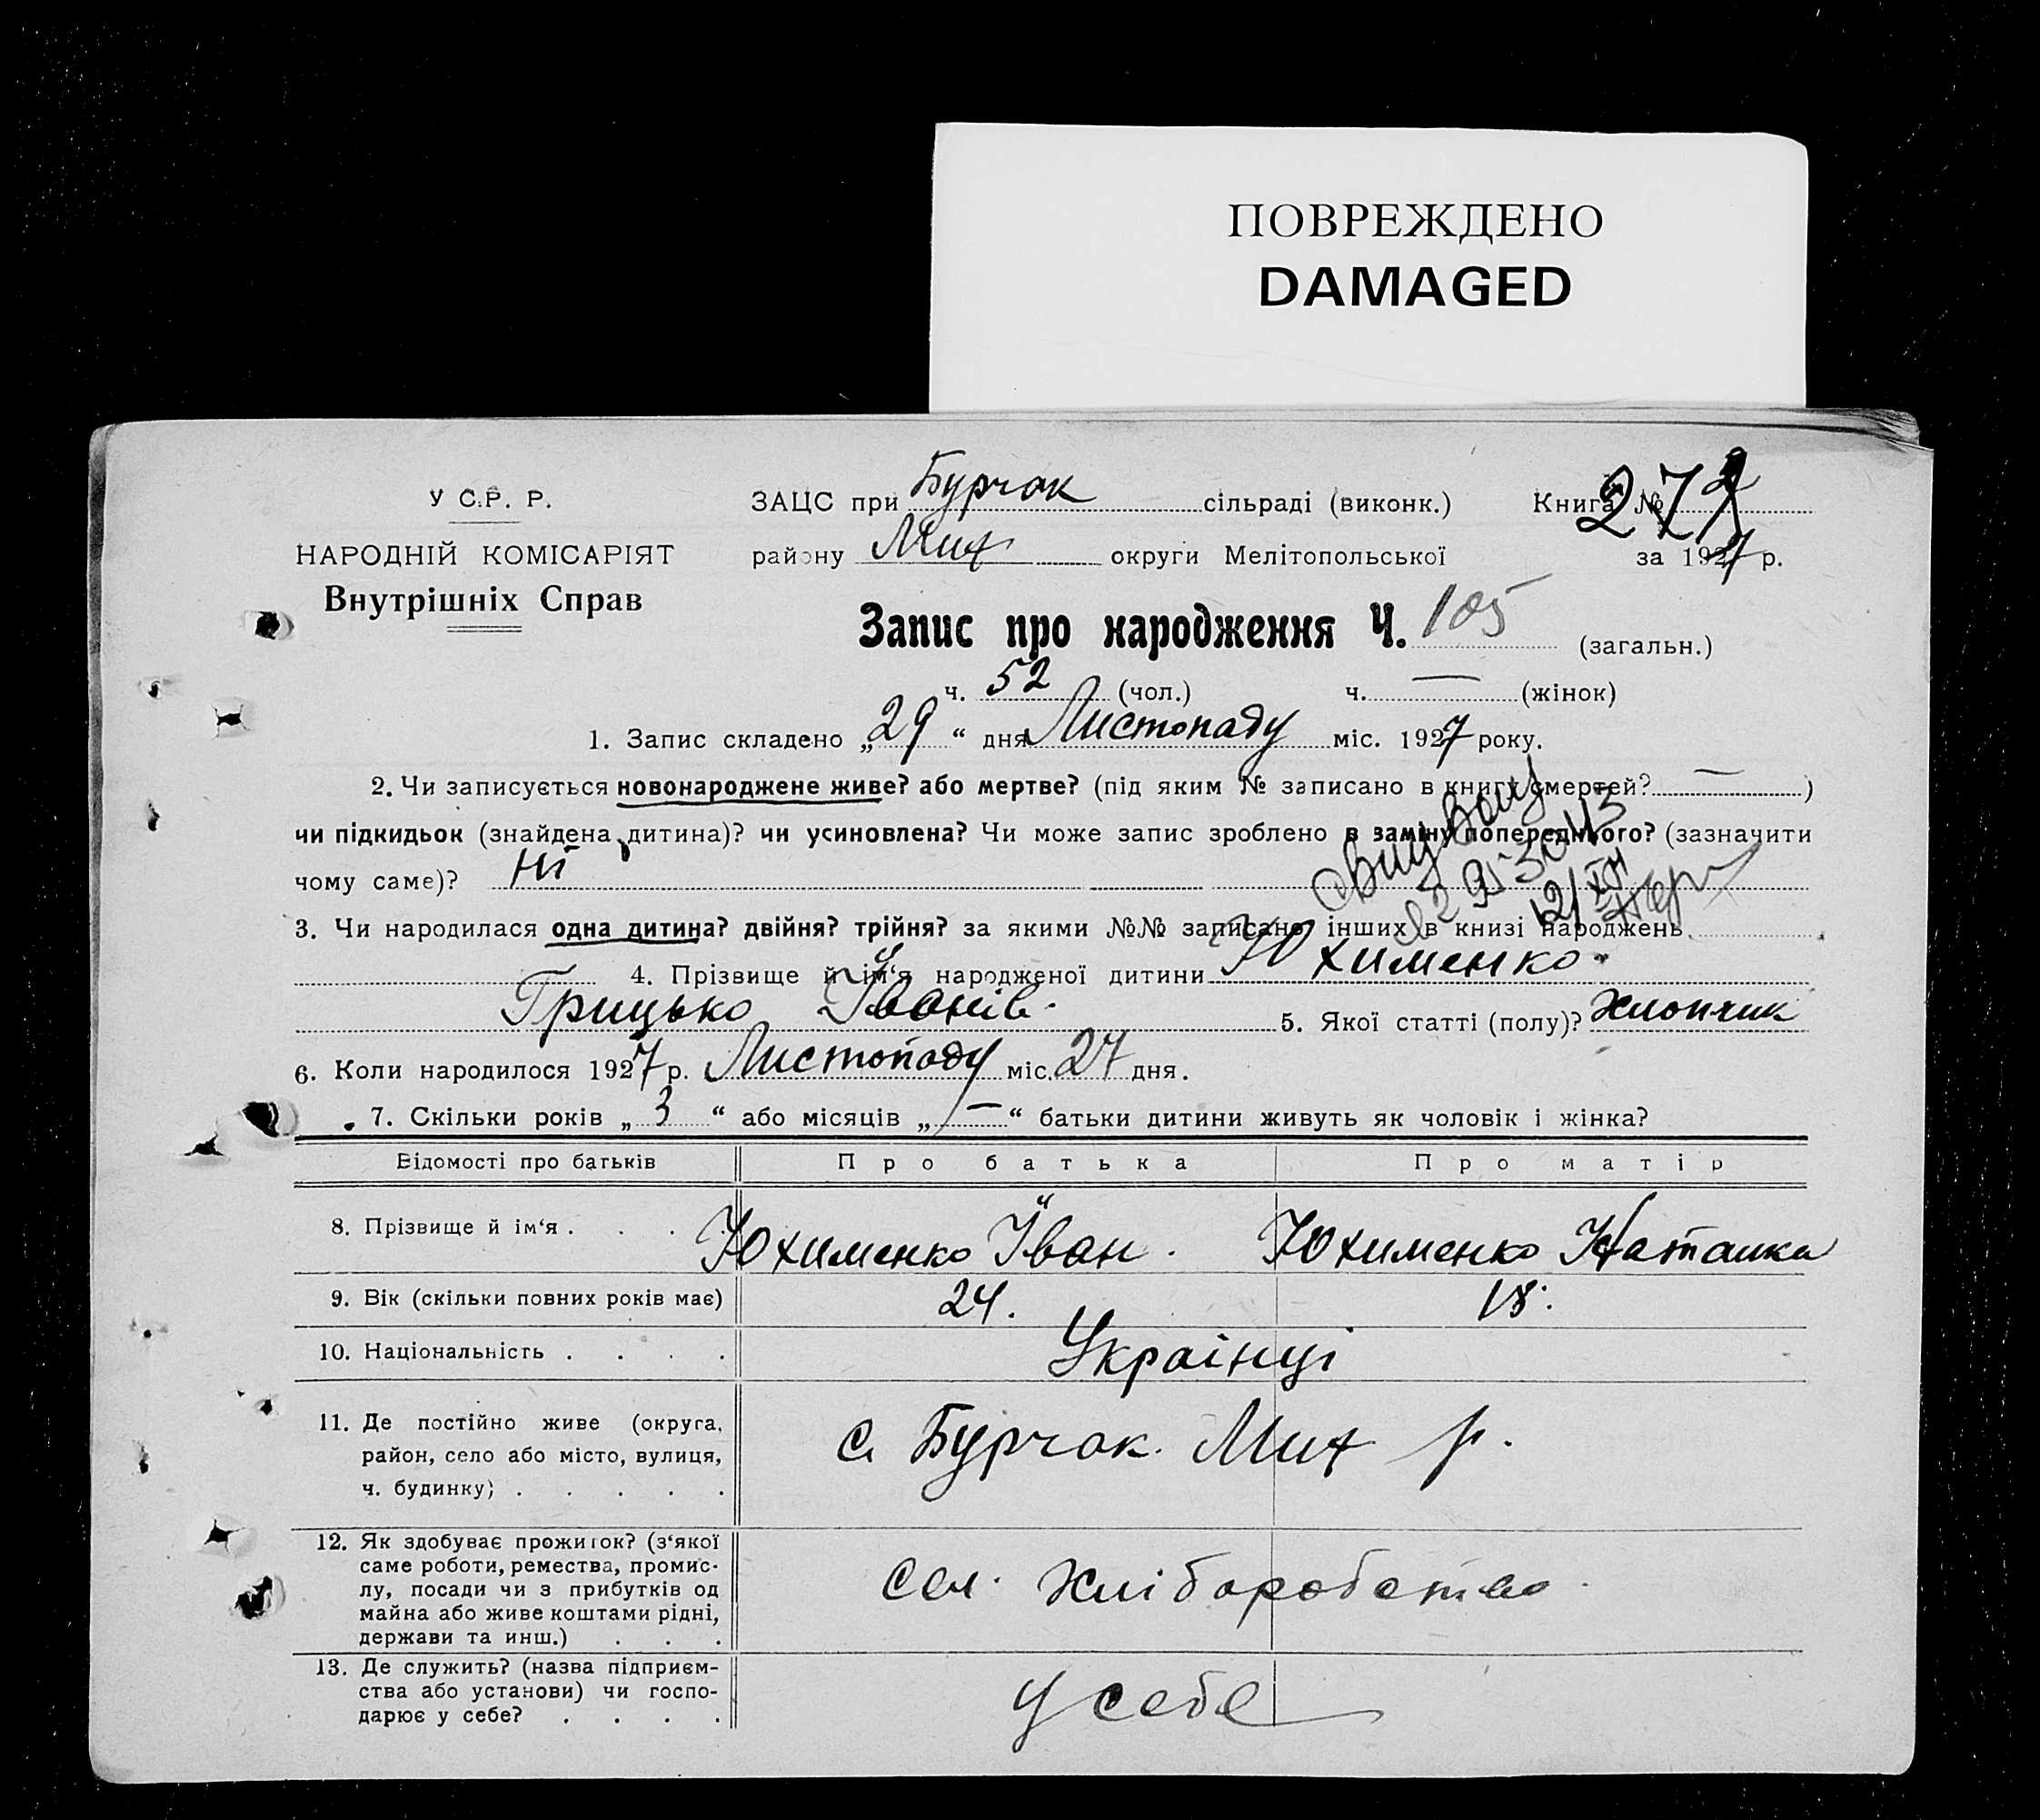 ПОВРЕЖДЕНО
DAMAGED
У С.Р. Р.
НАРОДНІЙ КОМІСАРІЯТ
Внутрішніх Справ
ЗАЦС при Бурчак сільраді (виконк.)
Книга №
272
району Мих округи Мелітопольської
за 1927 р.
Запис про народження Ч. 105 (загальн.)
ч. 52 (чол.) ч. — (жінок)
1. Запис складено „29“ дня Листопаду міс. 1927 року.
2. Чи записується новонароджене живе? або мертве? (під яким № записано в книгу смертей? — )
чи підкидьок (знайдена дитина)? чи усиновлена? Чи може запис зроблено в заміну попереднього? (зазначити
чому саме)? ні
3. Чи народилася одна дитина? двійня? трійня? за якими №№ записано інших в книзі народжень
4. Прізвище й ім‘я народженої дитини Юхименко
Грицько Іванів. 5. Якої статті (полу)? Хлопчик
6. Коли народилося 1927 р. Листопаду міс. 27 дня.
7. Скільки років „3“ або місяців „—“ батьки дитини живуть як чоловік і жінка?
Відомості про батьків Про батька Про матір
8. Прізвище й ім‘я . . . . Юхименко Іван. Юхименко Наталка
9. Вік (скільки повних років має) 24. 18.
10. Національність . . . . Українці
11. Де постійно живе (округа,
район, село або місто, вулиця,
ч. будинку) . . . . .
с. Бурчак. Мих р.
12. Як здобуває прожиток? (з‘якої
саме роботи, ремества, промис-
лу, посади чи з прибутків од
майна або живе коштами рідні,
держави та инш.) . . .
Сел. хліборобство.
13. Де служить? (назва підприєм-
ства або установи) чи госпо-
дарює у себе? . . . .
у себе